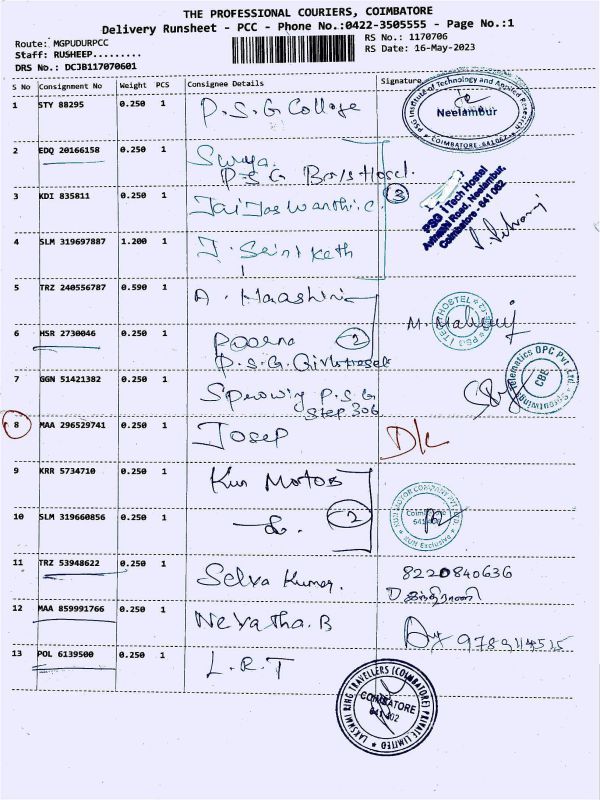 THE PROFESSIONAL COURIERS, COIMBATORE
Delivery Runsheet - PCC - Phone No.:0422-3505555 - Page No.:1
Route: MGPUDURPCC
Staff: RUSHEEP.........
DRS No.: DCJB117070601
RS No.: 1170706
RS Date: 16-May-2023
S No Consignment No Weight PCS Consignee Details Signature
1 STY 88295 0.250 1 P.S.G College
PSG Institute of Technology and Applied Research
Neelambur
COIMBATORE
2 EDQ 20166158 0.250 1 Surya.
P.S.G Boys Hostel.
3
3 KDI 835811 0.250 1 Jai Jaswanthi.c
PSG iTech Hostel
Avinashi Road, Neelambur,
Coimbatore - 641 062
4 SLM 319697887 1.200 1 J. Srini keth
5 TRZ 240556787 0.590 1 A. Haashini
M.
6 HSR 2730046 0.250 1 Poorna 2
P.S.G. Girls Hostel
7 GGN 51421382 0.250 1 P.S.G
Step 306
OPC Pvt. Ltd.
CBE
8 MAA 296529741 0.250 1 Josep D/L
9 KRR 5734710 0.250 1 Kun Motos
KUN MOTOR COMPANY PVT LTD
Coimbatore
KUN Exclusive
10 SLM 319660856 0.250 1 2
11 TRZ 53948622 0.250 1 Selva Kumar. 8220840636
12 MAA 859991766 0.250 1 Neyatha.B
13 POL 6139500 0.250 1 L.R.T
LAKSHMI RING TRAVELLERS (COIMBATORE) PRIVATE LIMITED
COIMBATORE
641 402